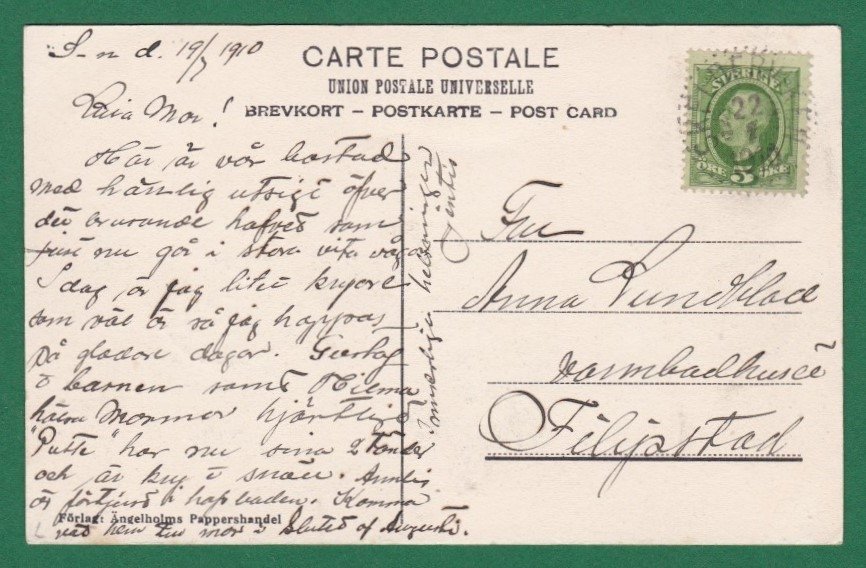 S-n d. 19/7 1910
CARTE POSTALE
UNION POSTALE UNIVERSELLE
BREVKORT – POSTKARTE – POST CARD
SVERIGE
22
ÖRE 5 ÖRE
Kära Mor!
Här är vår bostad
med härlig utsigt öfver
det brusande hafvet som
just nu går i stora vita våg
I dag är jag litet kryare
som väl är så jag hoppas
på gladare dagar. Gustaf
o barnen samt Hilma
hälsa Mormor hjärtligt
"Putte" har nu sina 2 tänder
och är kry o snäll. Annlis
är förtjust i hafsbaden. Komma
nåd hem till mor i slutet af Augusti.
Innerliga helsningar
Jentis
Fru
Anna Lundblad
Varmbadhuset
Filipstad
Förlag: Ängelholms Pappershandel